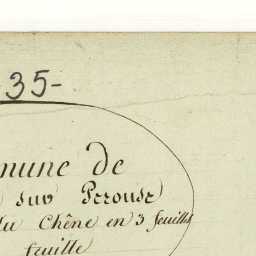 35-
mune de
sur Perouse
du Chêne en 3 feuilles
feuille